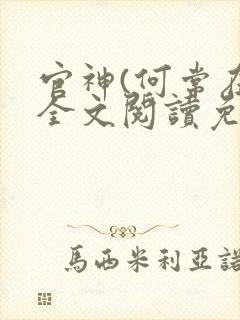 官神(何常在
全文閱讀免
馬西米利亞諾